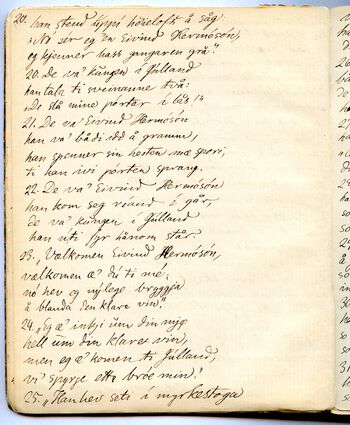 20. han stend uppi höieloft å såg:
"No ser eg en Eivind Hermóson,
og kjenner hass gangaren grå."
20. De va' kungen i Júlland
han tala ti sveinanne två:
"De slå mine pórtar i lås!"
21. De va' Eivind Hermóson
han va' bådi ødd å gramm,
han spenner sin hesten mæ spori,
ti han ivi pórten sprang.
22. De va' Eivind Hermóson
han kom seg riand i går,
de va' kungen i Júlland
han úti fyr hånom står.
23. "Vælkomen Eivind Hermóson,
vælkomen æ' dú ti mé;
no hev eg nýlege bryggja
å blanda den klare vin."
24. "Eg æ' inkji úm din mjø
hell úm din klare vin,
men eg æ' komen ti Júlland,
vi' spyrje ette bróe min."
25. "Han hev seti i myrkestoga